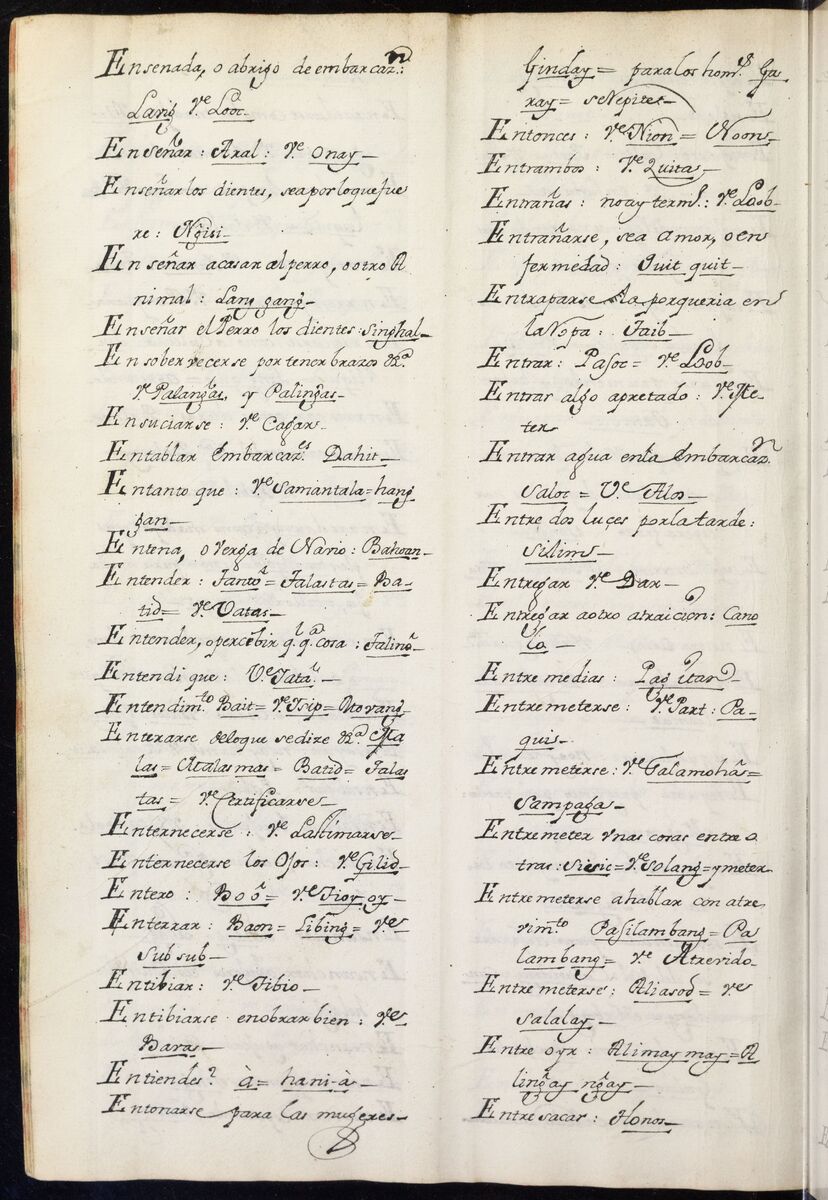 Ensenada, o abrigo de embarcazn.:
Lang Ve. Looc.
Enseñar: Aral: Ve. onay —
Enseñarlos dientes, seaporloquefue
re: Ngisi —
Enseñar acasar alperro, ootro A
nimal: Lang gang —
Enseñar el Perro los dientes: singhal —
Ensobervecerse portener brazos &a.
Ve. Palangas, y Palingas —
Ensuciarse: Ve. Cagar —
Entablar embarcazes. Dahit —
Entanto que: Ve. Samantala = hang
gan —
Entena, o verga de Navio: Bahoan —
Entender: = Talastas = Ba-
tid = Ve. Vatas —
Entender, opercebir qlqa. cosa:
Entendi que: Ve.
Entendimto. Bait = Ve. Isip =
Enterarse deloque sedize &a. Ma
las = Matalas mas = Batid = Talas
tas = Ve. Certificarse —
Enternecerse: Ve. Lastimarse —
Enternecerse los Ojos: Ve. Gilid —
Entero: Boō = Ve. Tioy oy —
Enterrar: Baon = Libing = Ve.
Subsub —
Entibiar: Ve. Tibio —
Entibiarse enobrarbien: Ve.
Baras —
Entiendes? à = hani-à —
Entonarse para las mugeres —
Ginday = paralos homs. Ga
ray = seRepite —
Entonces: Ve. Nion = Noon —
Entrambos: Ve. Quita —
Entrañas: noay terml.: Ve. Loob —
Entrañarse, sea amor, o en
fermedad: Quit quit —
Entraparse la porqueria en
laRopa: Taib —
Entrar: Pasoc = Ve. Loob —
Entrar algo apretado: Ve. Me-
ter
Entrar agua enla embarcazn.
Saloc = Ve. Alos —
Entre dos luçes porlatarde:
Silim —
Entregar Ve. Dar —
Entregar aotro atraicion: Cano
lo —
Entremedias: Pag itan
Entremeterse: Ve. Part: Pa-
quis —
Entremeterse: Ve. =
Sampaga —
Entremeter vnas cosas entre o
tras: Sicsic = Ve. Solang = ymeter
Entremeterse ahablar con atre
vimto. Pasilambang = Pa
lambang = Ve. Atrevido —
Entremeterse: Aliasod = Ve.
salalay —
Entre oyr: Alimay may = A
lingay ngay —
Entresacar: Honos —